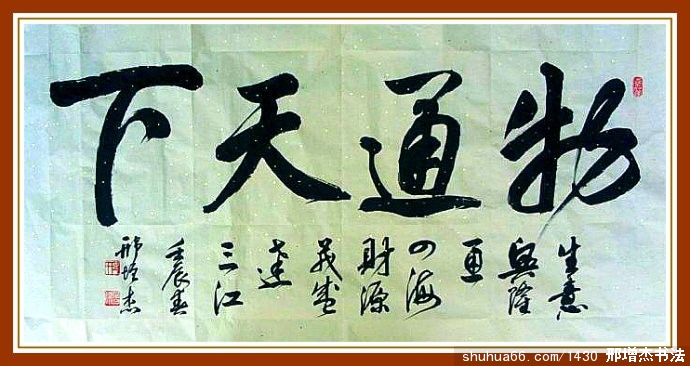 物通天下
生意
興隆
通
四海
財源
茂盛
達
三江
壬辰春
邢增杰
shuhua66.com/1430 邢增杰书法